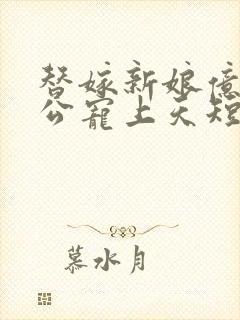 替嫁新娘億
公寵上天短
慕水月